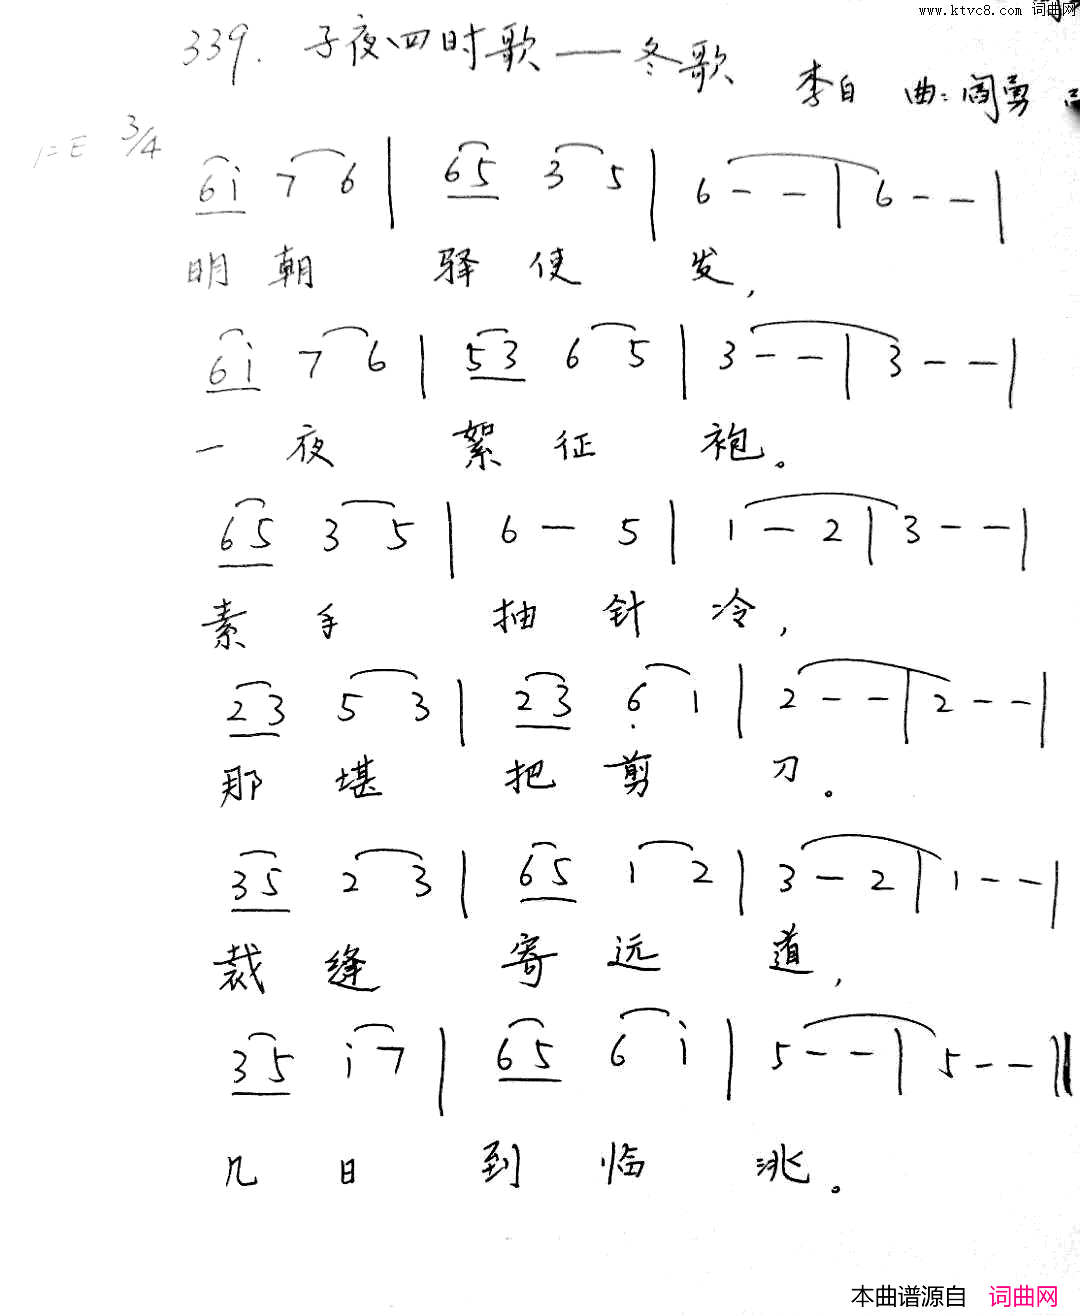 www.ktvc8.com 词曲网
339. 子夜四时歌——冬歌
李白 曲:阎勇
1=E 3/4
6i 7 6 | 65 3 5 | 6 - - | 6 - - |
明朝 驿使 发,
6i 7 6 | 53 6 5 | 3 - - | 3 - - |
一夜 絮征 袍。
65 3 5 | 6 - 5 | 1 - 2 | 3 - - |
素手 抽针冷,
23 5 3 | 23 6̣ 1 | 2 - - | 2 - - |
那堪 把剪 刀。
35 2 3 | 65 1 2 | 3 - 2 | 1 - - |
裁缝 寄远 道,
35 i 7 | 65 6 i | 5 - - | 5 - - ‖
几日 到临 洮。
本曲谱源自 词曲网